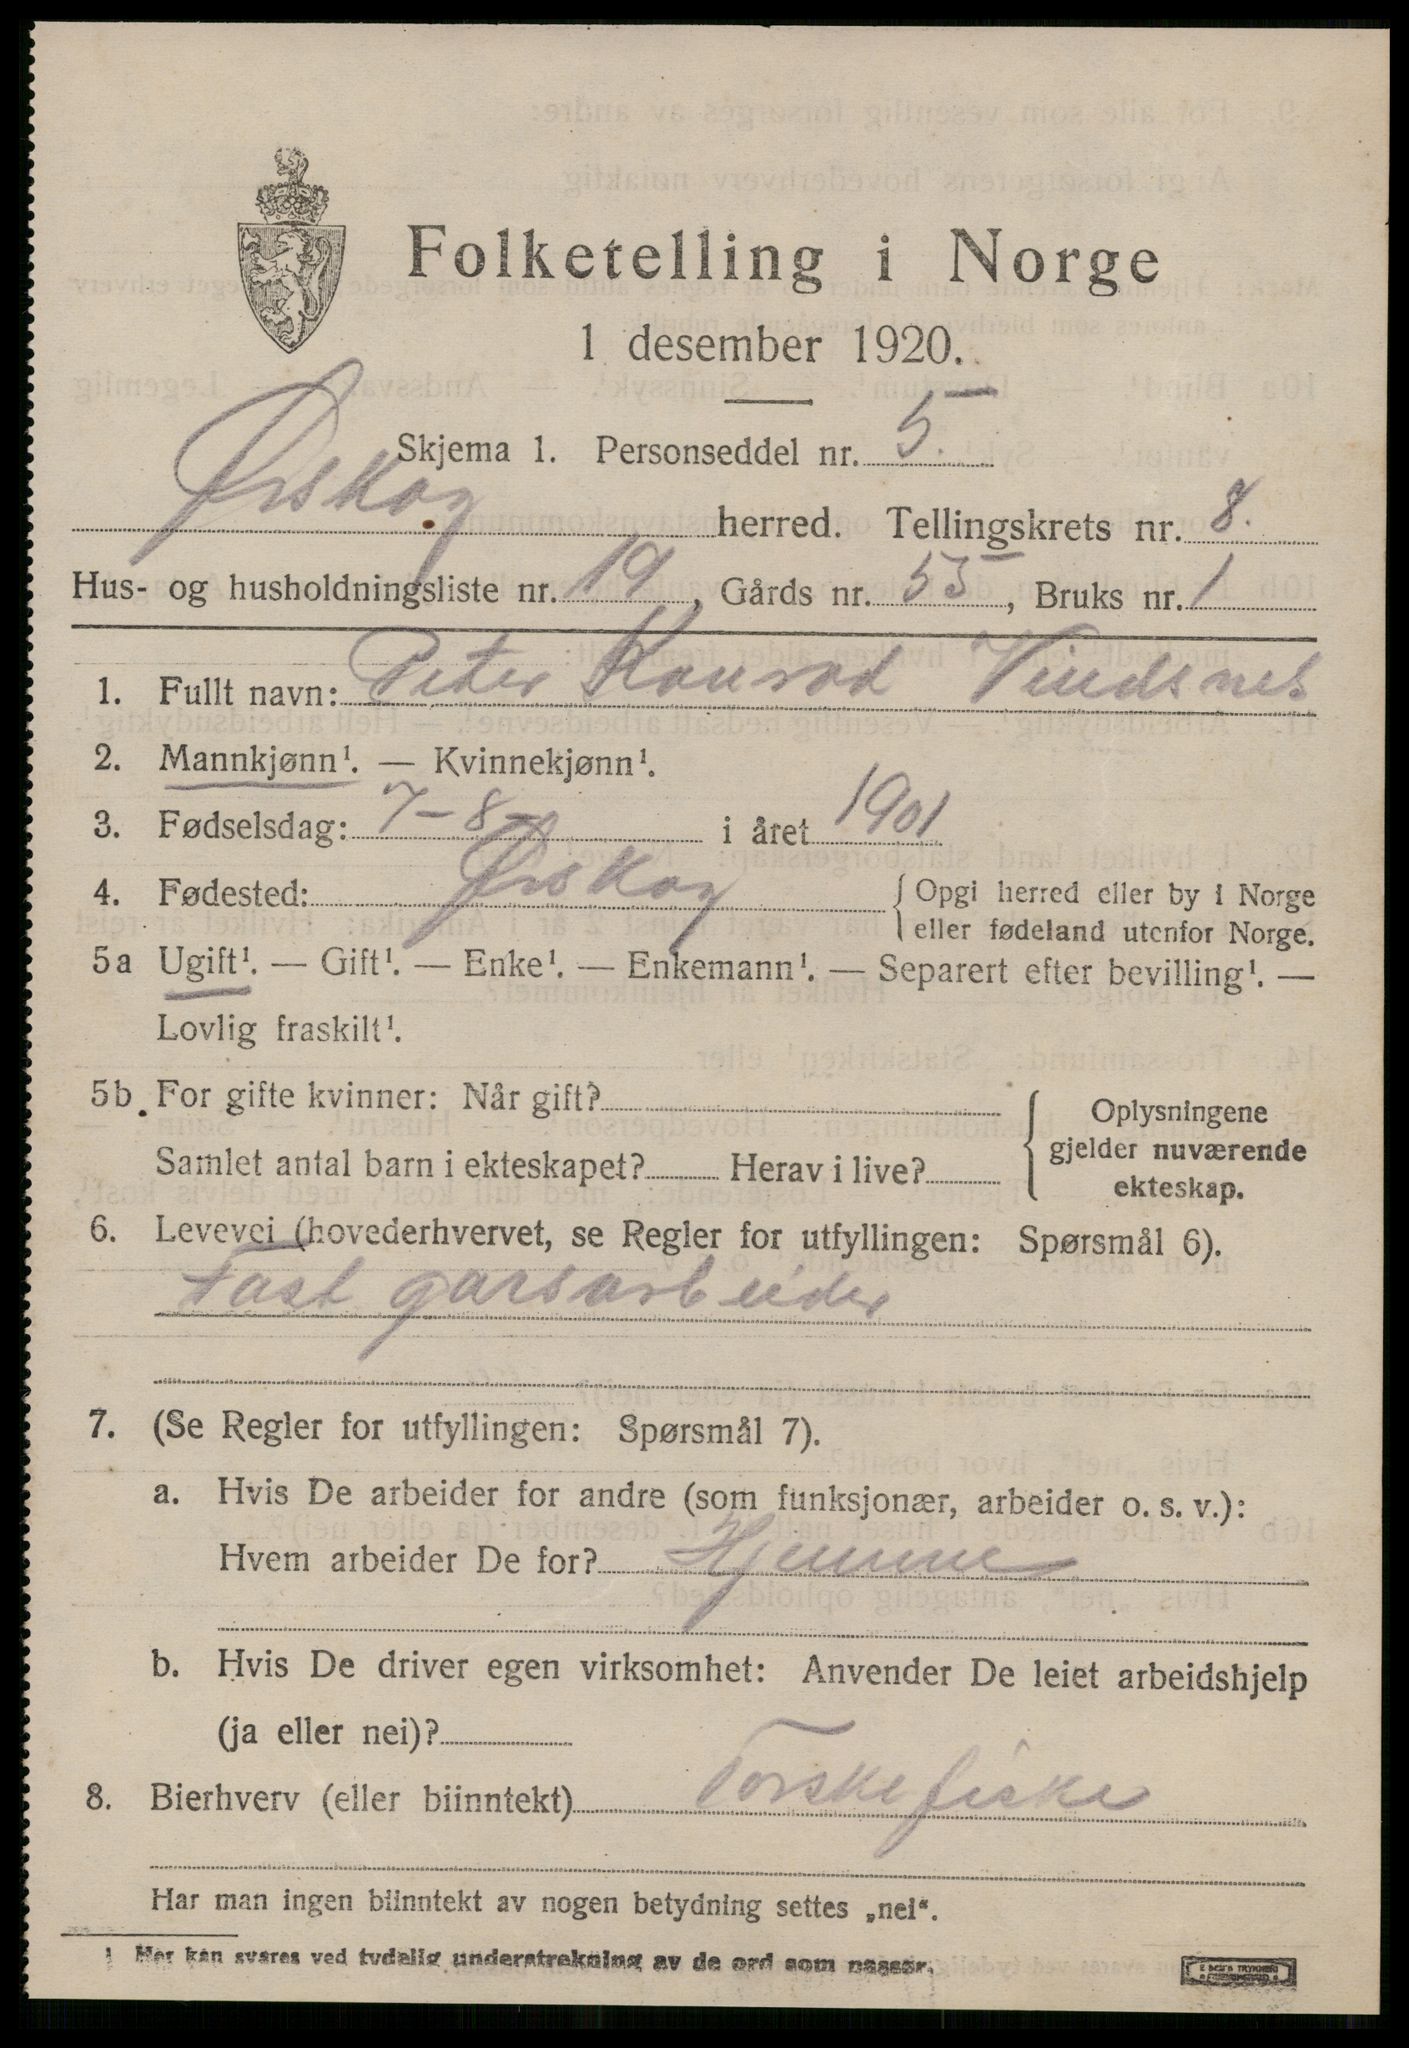 Folketelling i Norge
1 desember 1920.
Skjema 1. Personseddel nr. 5.
Ørskog herred. Tellingskrets nr. 8.
Hus- og husholdningsliste nr. 19, Gårds nr. 55, Bruks nr. 1
1. Fullt navn: Peter Konrad Vindsnes
2. Mannkjønn¹. — Kvinnekjønn¹.
3. Fødselsdag: 7-8- i året 1901
4. Fødested: Ørskog { Opgi herred eller by i Norge
eller fødeland utenfor Norge.
5a Ugift¹. — Gift¹. — Enke¹. — Enkemann¹. — Separert efter bevilling¹. —
Lovlig fraskilt¹.
5b. For gifte kvinner: Når gift? { Oplysningene
gjelder nuværende
Samlet antal barn i ekteskapet? Herav i live?
ekteskap.
6. Levevei (hovederhvervet, se Regler for utfyllingen: Spørsmål 6).
Fast garsarbeider
7. (Se Regler for utfyllingen: Spørsmål 7).
a. Hvis De arbeider for andre (som funksjonær, arbeider o. s. v.):
Hvem arbeider De for? Hjemme
b. Hvis De driver egen virksomhet: Anvender De leiet arbeidshjelp
(ja eller nei)?
8. Bierhverv (eller biinntekt) Torskefiske
Har man ingen biinntekt av nogen betydning settes „nei“.
1 Her kan svares ved tydelig understrekning av de ord som passer.